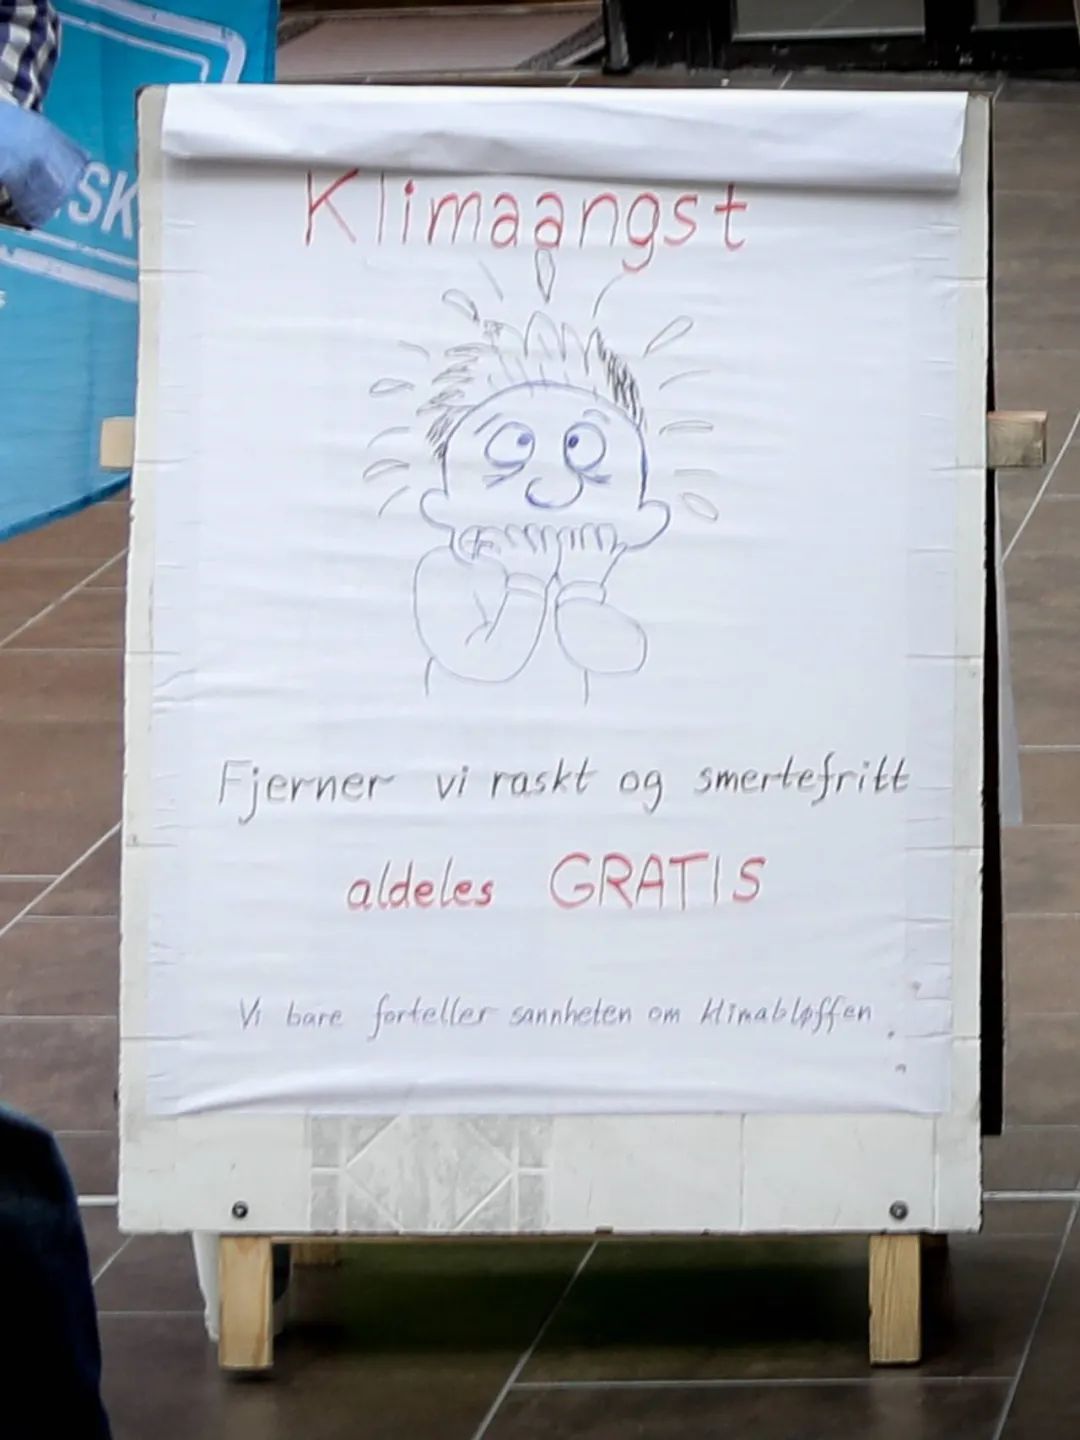 SK
Klimaangst
Fjerner vi raskt og smertefritt
aldeles GRATIS
Vi bare forteller sannheten om klimabløffen